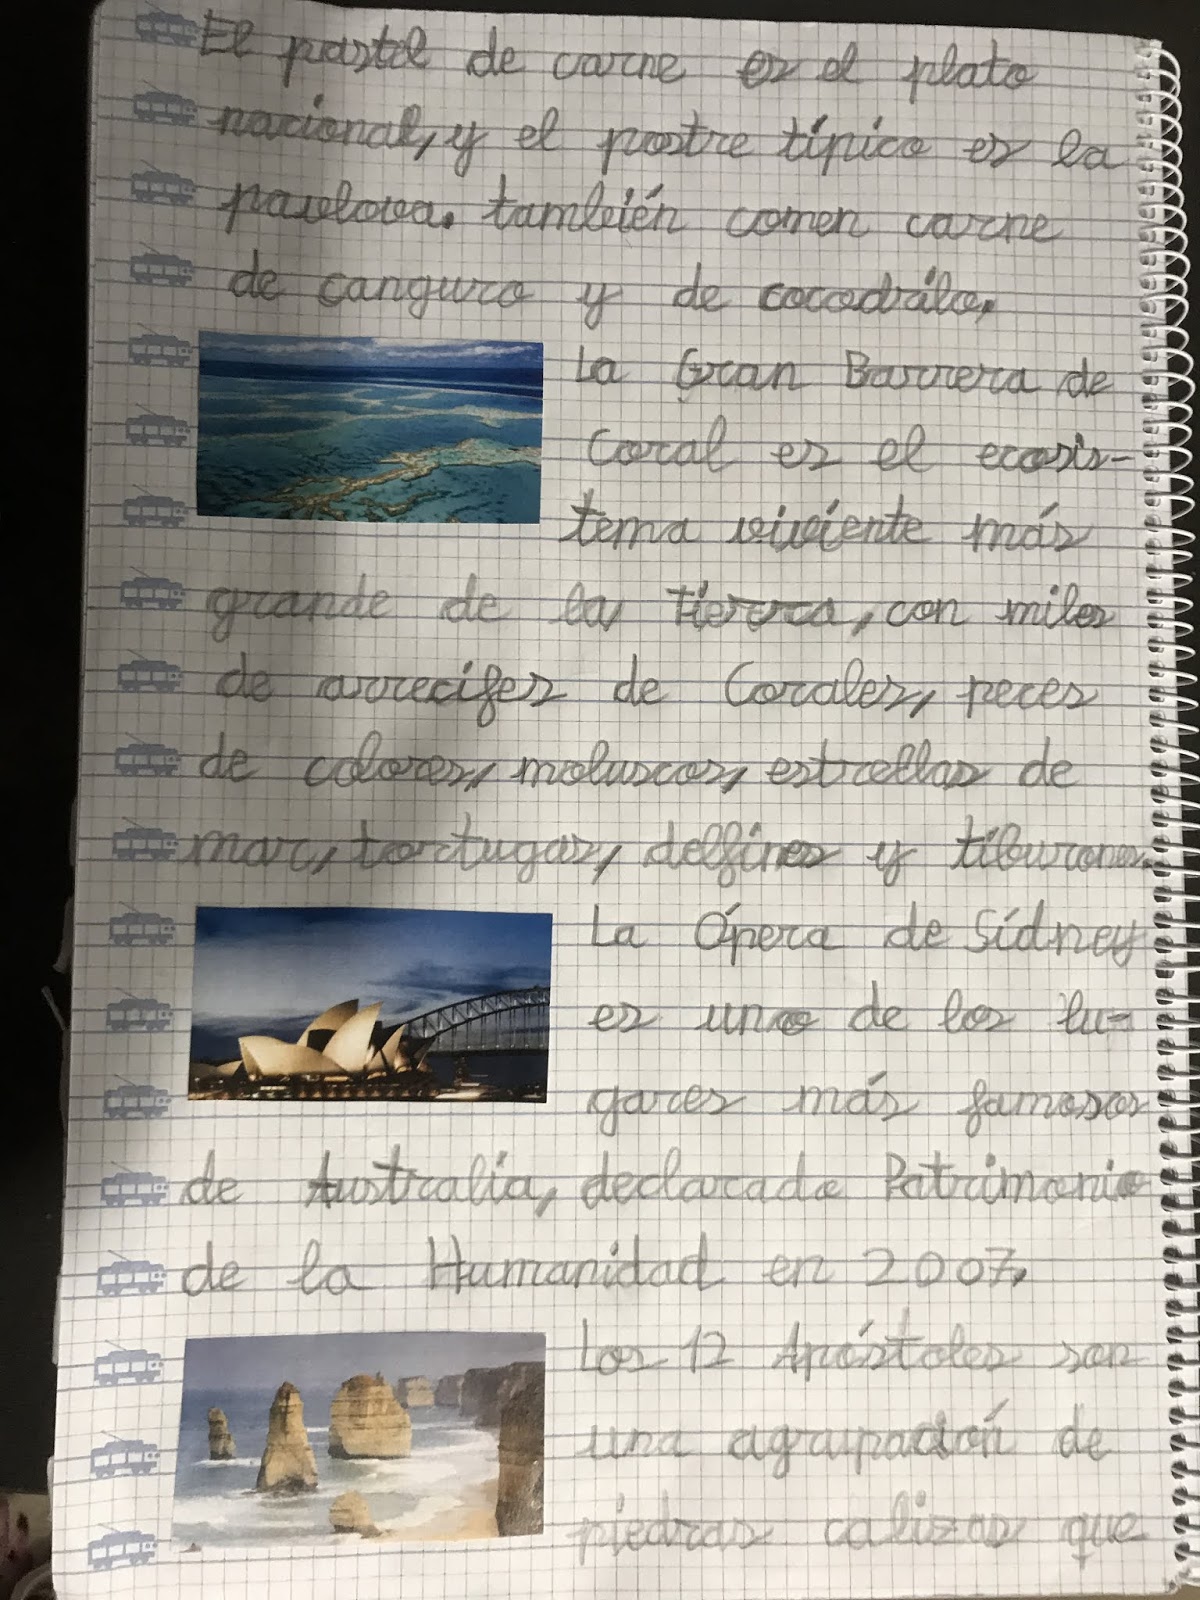 El pastel de carne es el plato
nacional, y el postre típico es la
pavlova. también comen carne
de canguro y de cocodrilo.
La Gran Barrera de
Coral es el ecosis-
tema viviente más
grande de la tierra, con miles
de arrecifes de Corales, peces
de colores, moluscos, estrellas de
mar, tortugas, delfines y tiburones.
La Ópera de Sídney
es uno de los lu-
gares más famosos
de Australia, declarada Patrimonio
de la Humanidad en 2007.
Los 12 Apóstoles son
una agrupación de
piedras calizas que